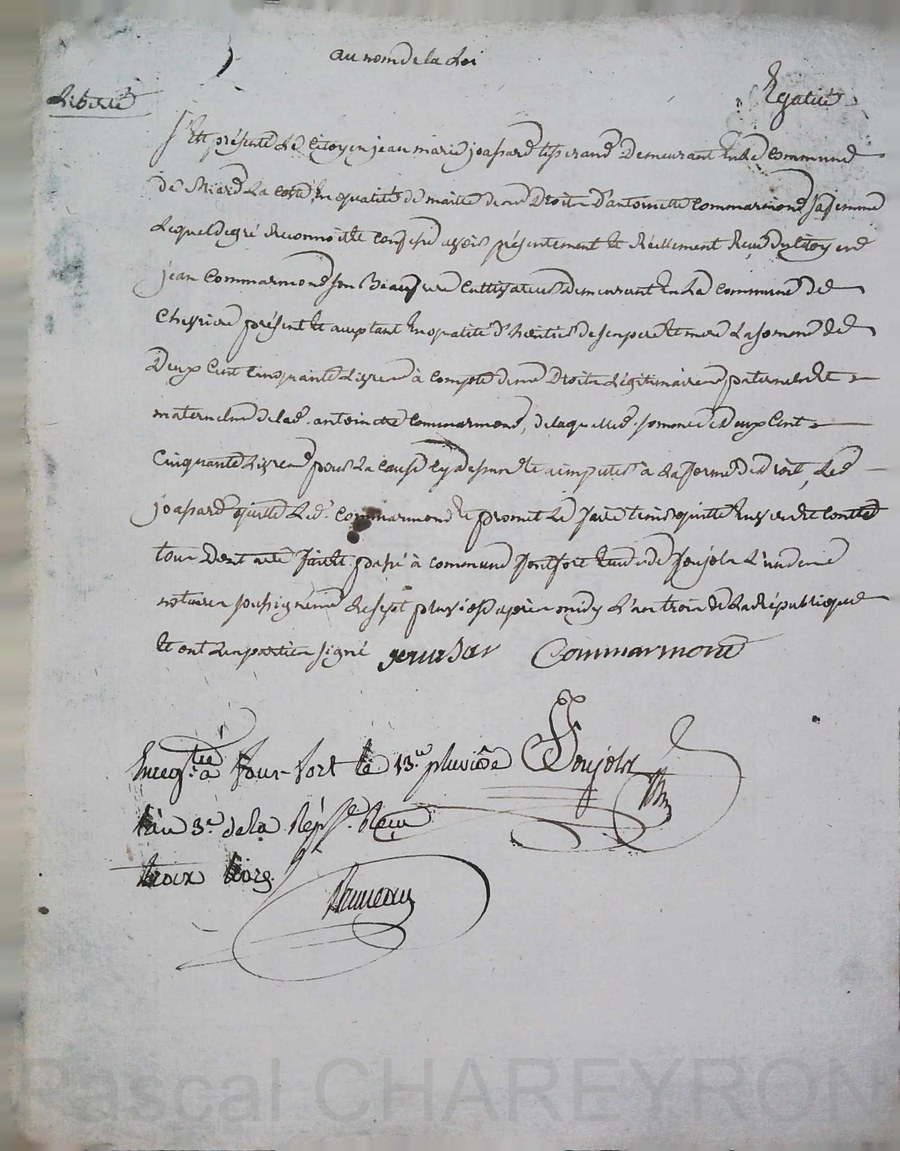 au nom de la Loi
Liberté Egalité
S'est présenté Le Citoyen jean marie joassard tisserand Demeurant En la Commune
de La Coste En qualité de maitre de Droits D'antoinette Commarmond Sa femme
Lequel de gré Reconnoit et Confesse avoir présentement et Réellement Reçu du Citoyen
jean Commarmond Son Beaufrere Cultivateur Demeurant En La Commune de
present et aceptant En qualité d'heritier de Ses pere et mere La Somme de
Deux Cent Cinquante Livres à Compte de Droits Légitimaires paternels Et
maternels de lad. antoinette Commarmond, de laquelle Somme de Deux Cent
Cinquante Livres pour La Cause Cy dessus et a imputer à La forme de Droit, Led.
joassard quitte Led. Commarmond Et promet Le faire tenir quitte Envers Et Contre
tous Dont acte fait Et passé à Commune fontfort Etude de Poujola L'un de
notaires Soussignéme Le Sept pluviose après midy L'an trois De La République
Et ont Les parties Signé joassar Commarmond
Enregtré à Fontfort le 13e pluviôse Poujola
L'an 3e de la Répque. Reçu
trois livres